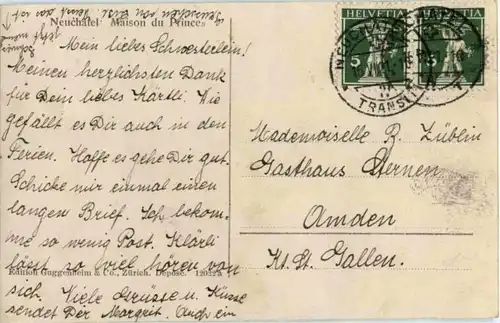 Neuchâtel Maison du Prince
Mein liebes Schwesterlein!
Meinen herzlichsten Dank
für Dein liebes Kärtli. Wie
gefällt es Dir auch in den
Ferien. Hoffe es gehe Dir gut.
Schicke mir einmal einen
langen Brief. Ich bekom-
me so wenig Post. Klärli
lässt so viel hören von
sich. Viele Grüsse u. Küsse
sendet Dir Margrit. Auch ein
Edition Guggenheim & Co., Zürich. Déposé.
HELVETIA HELVETIA
5 5
NEUCHATEL
TRANSIT
Mademoiselle R. Züblin
Gasthaus Sternen
Amden
Kt. St. Gallen.